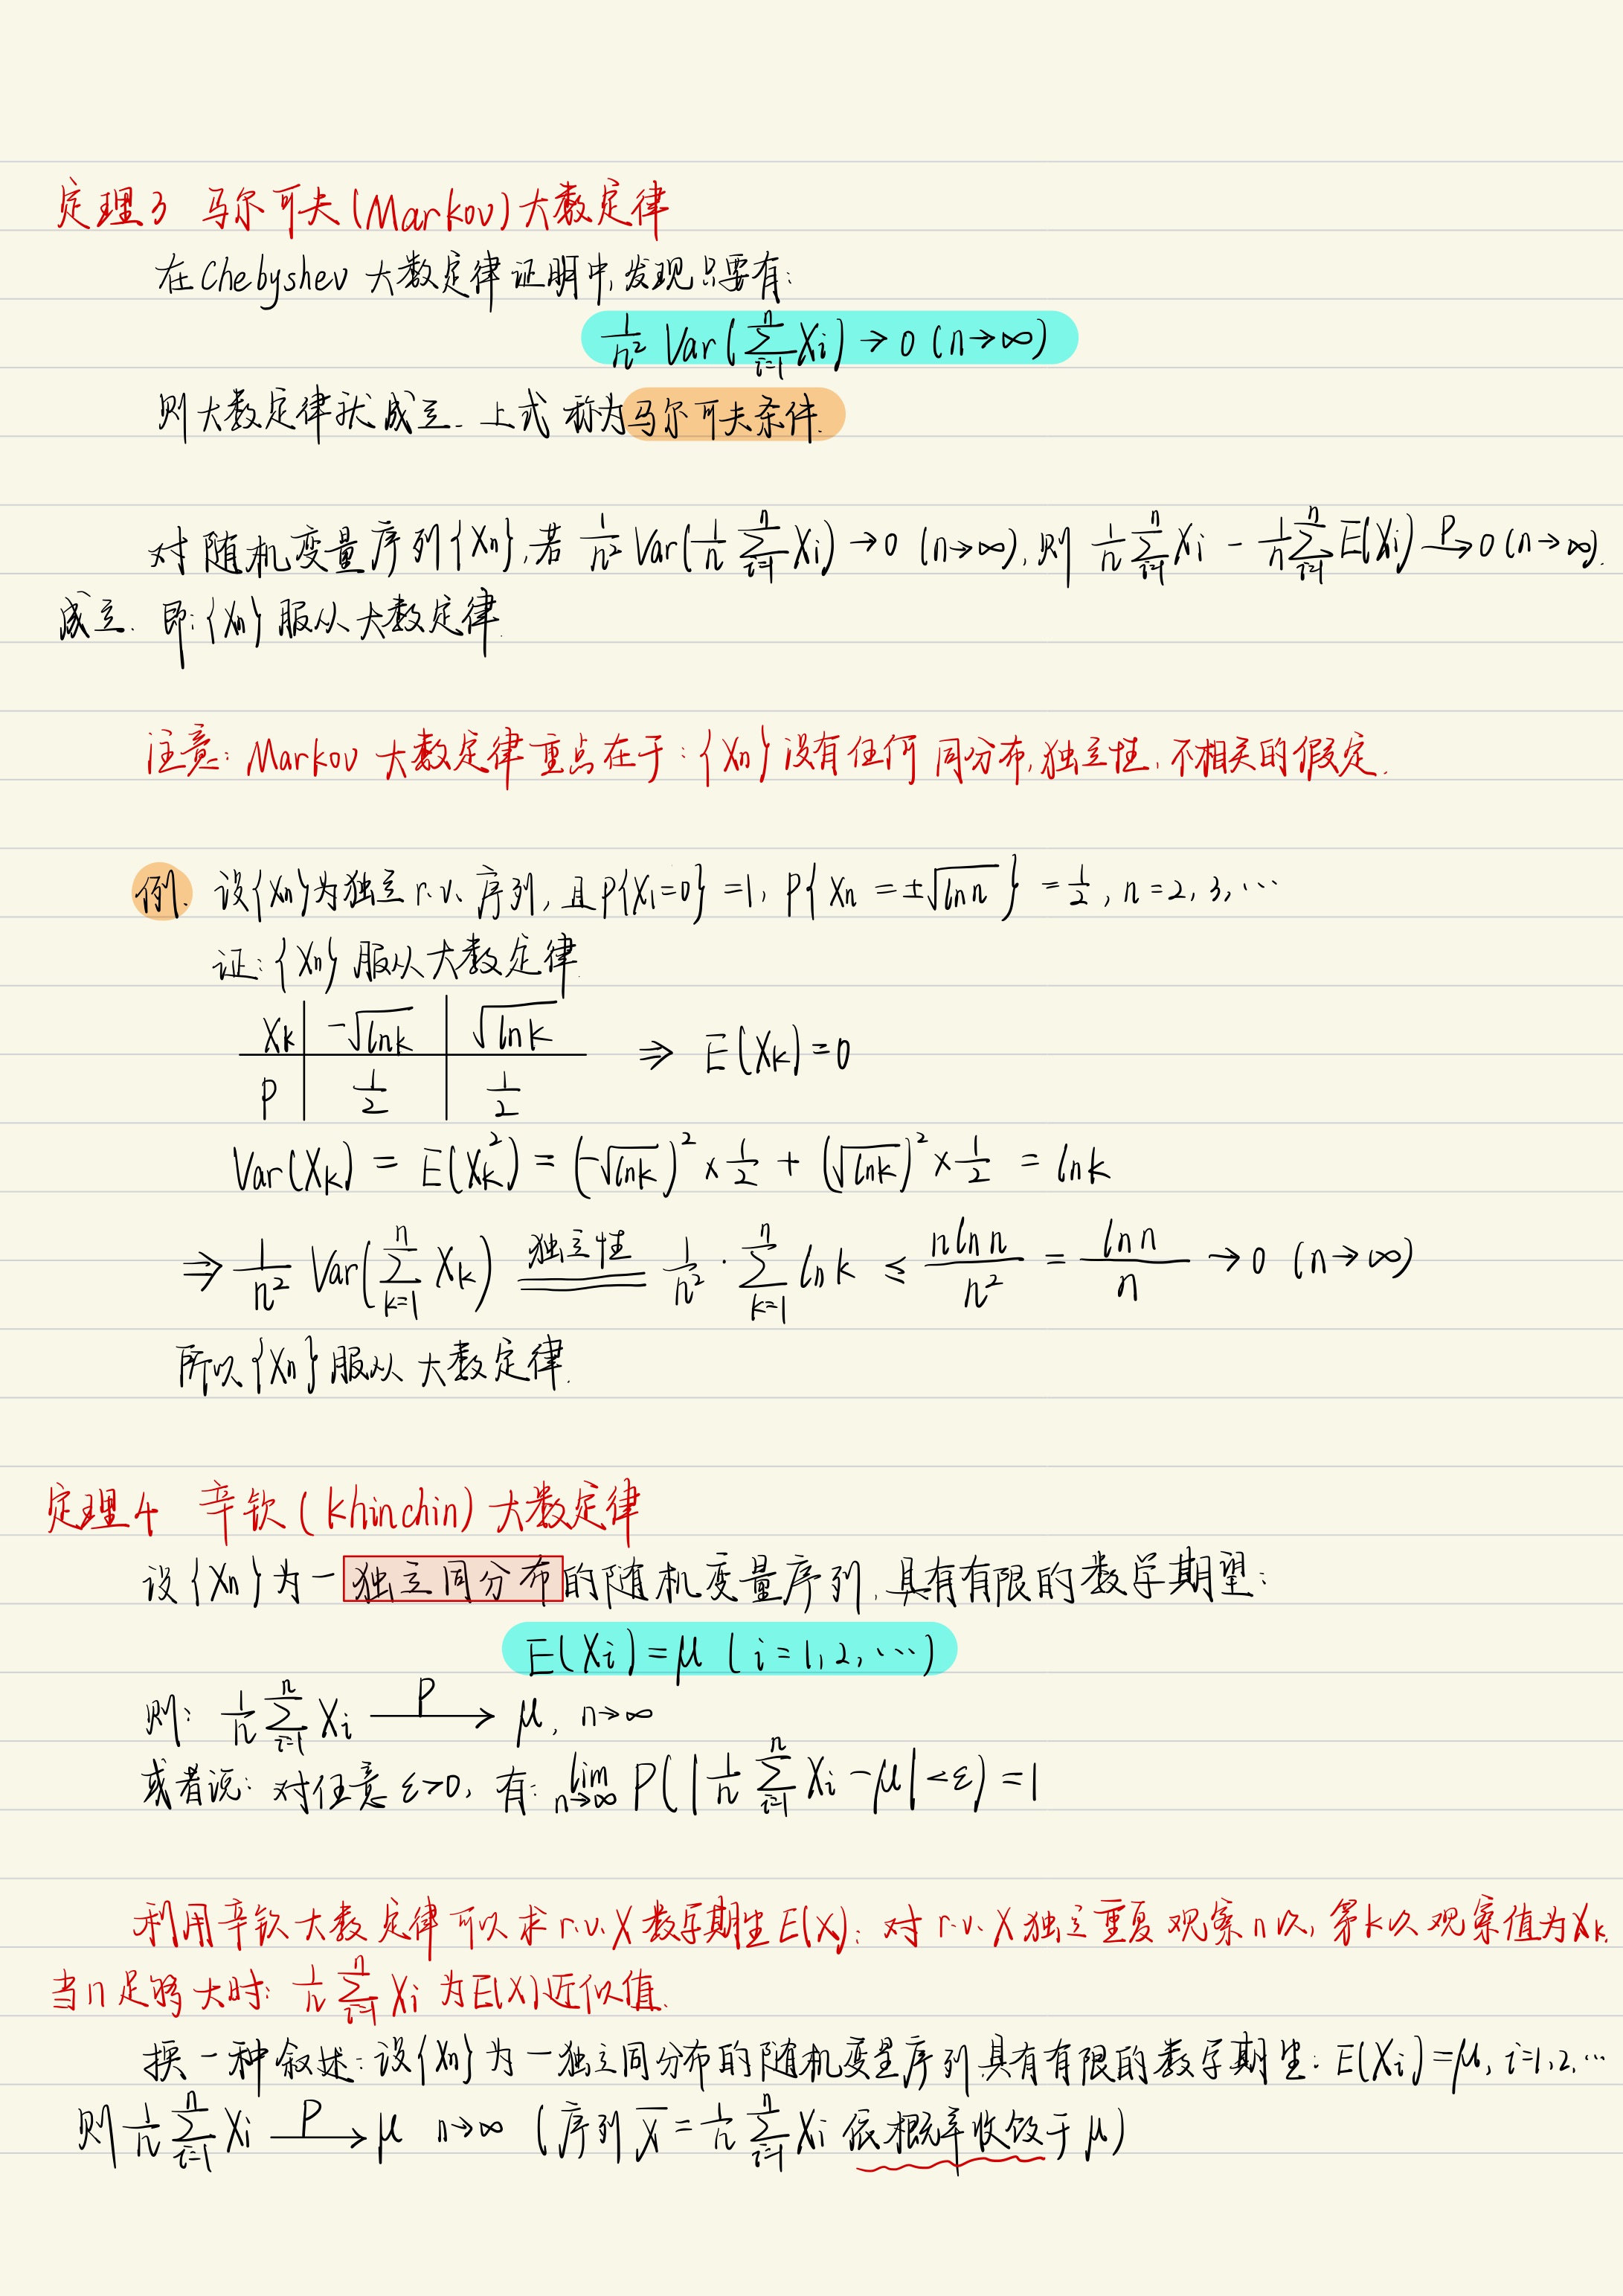 定理3 马尔可夫(Markov)大数定律
在Chebyshev 大数定律证明中,发现只要有:
$\frac{1}{n^2} Var(\sum_{i=1}^{n} X_i) \to 0 \ (n\to\infty)$
则大数定律就成立. 上式称为马尔可夫条件.
对随机变量序列{Xn},若 $\frac{1}{n^2} Var(\frac{1}{n}\sum_{i=1}^{n} X_i) \to 0 \ (n\to\infty)$,则 $\frac{1}{n}\sum_{i=1}^{n} X_i - \frac{1}{n}\sum_{i=1}^{n} E(X_i) \xrightarrow{P} 0 \ (n\to\infty)$.
成立. 即:{Xn}服从大数定律.
注意: Markov 大数定律重点在于:{Xn}没有任何同分布,独立性,不相关的假定.
例. 设{Xn}为独立r.v.序列,且$P\{X_1=0\}=1$, $P\{X_n=\pm\sqrt{\ln n}\}=\frac{1}{2}$, n=2,3,…
证:{Xn}服从大数定律.
$X_k$ | $-\sqrt{\ln k}$ | $\sqrt{\ln k}$
P | $\frac{1}{2}$ | $\frac{1}{2}$ $\Rightarrow E(X_k)=0$
$Var(X_k) = E(X_k^2) = (-\sqrt{\ln k})^2 \times \frac{1}{2} + (\sqrt{\ln k})^2 \times \frac{1}{2} = \ln k$
$\Rightarrow \frac{1}{n^2} Var(\sum_{k=1}^{n} X_k) \overset{独立性}{=\!=\!=} \frac{1}{n^2} \cdot \sum_{k=1}^{n} \ln k \leq \frac{n\ln n}{n^2} = \frac{\ln n}{n} \to 0 \ (n\to\infty)$
所以{Xn}服从大数定律.
定理4 辛钦(Khinchin)大数定律
设{Xn}为一独立同分布的随机变量序列,具有有限的数学期望:
$E(X_i)=\mu \ (i=1,2,\cdots)$
则: $\frac{1}{n}\sum_{i=1}^{n} X_i \xrightarrow{P} \mu, \ n\to\infty$
或者说: 对任意 ε>0, 有: $\lim_{n\to\infty} P(|\frac{1}{n}\sum_{i=1}^{n} X_i - \mu| < \varepsilon) = 1$
利用辛钦大数定律可以求r.v.X数学期望E(X): 对r.v.X独立重复观察n次,第k次观察值为$X_k$,
当n足够大时: $\frac{1}{n}\sum_{i=1}^{n} X_i$ 为E(X)近似值.
换一种叙述:设{Xn}为一独立同分布的随机变量序列,具有有限的数学期望: $E(X_i)=\mu$, i=1,2,…
则 $\frac{1}{n}\sum_{i=1}^{n} X_i \xrightarrow{P} \mu \ n\to\infty$ (序列 $\overline{X}=\frac{1}{n}\sum_{i=1}^{n} X_i$ 依概率收敛于μ)